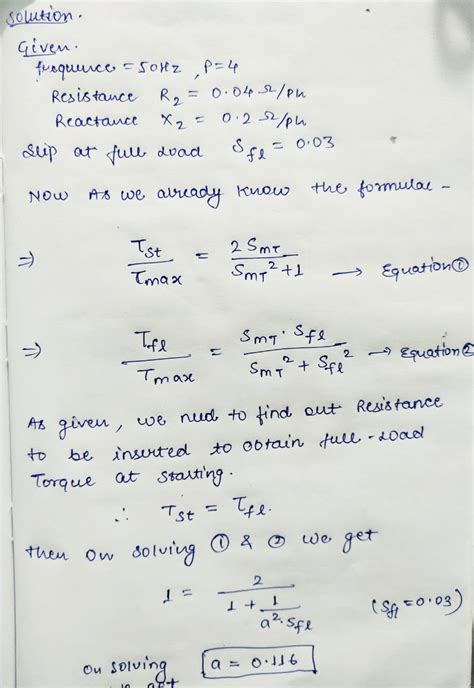 Solution.
Given.
frequence = 50Hz, P=4
Resistance R₂ = 0.04 Ω/Ph
Reactance X₂ = 0.2 Ω/Ph
Slip at full load S_fl = 0.03
Now As we already know the formulae -
⇒ T_st / T_max = 2 S_mT / (S_mT² + 1) → Equation ①
⇒ T_fl / T_max = S_mT · S_fl / (S_mT² + S_fl²) → Equation ②
As given, we need to find out Resistance
to be inserted to obtain full-load
Torque at starting.
∴ T_st = T_fl.
then on solving ① & ② we get
1 = 2 / (1 + 1 / (a² · S_fl)) (S_fl = 0.03)
on solving a = 0.116